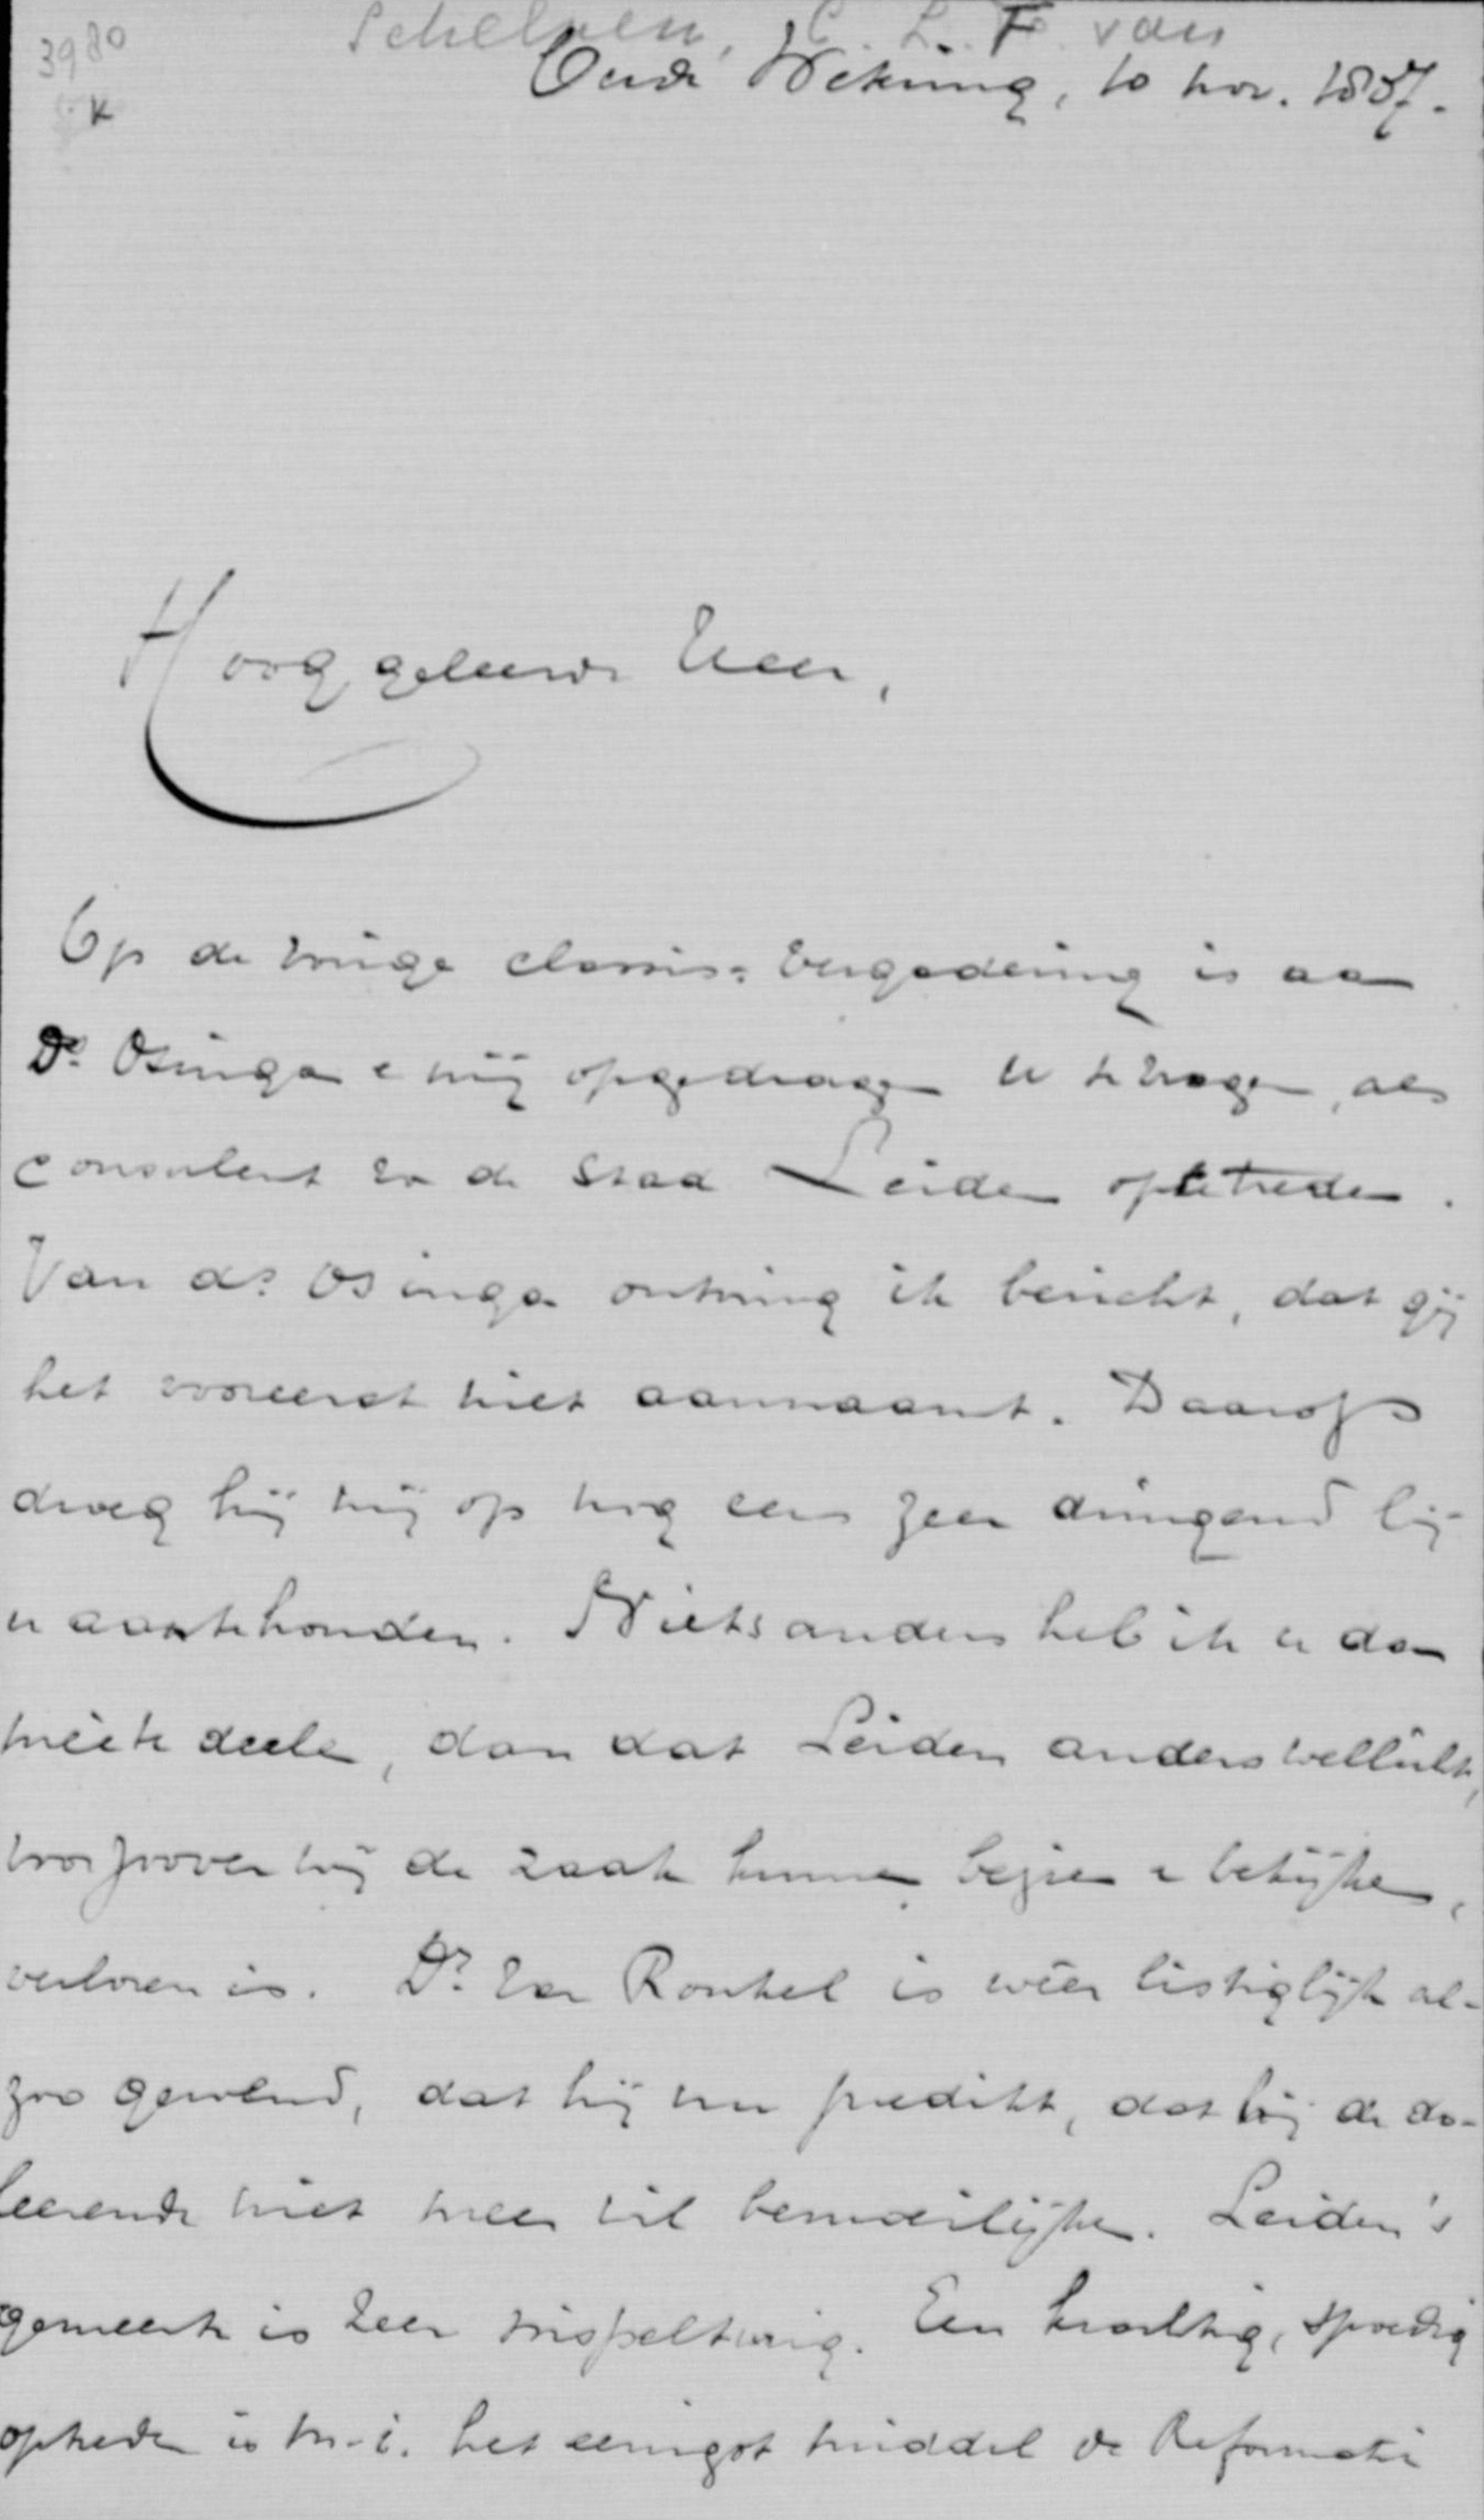 3980
K
Schelven, C. L. F. van
Oude Wetering, 10 nov. 1887.
Hooggeleerde Heer,
Op de vorige classis-vergadering is aan
Ds. Osinga e mij opgedragen U te vragen, als
consulent van de stad Leiden optetreden.
Van ds. Osinga ontving ik bericht, dat gij
het vooreerst niet aannaamt. Daarop
droeg hij mij op nog eens zeer dringend bij
u aantehouden. Niets anders heb ik u dan
meêtedeelen, dan dat Leiden anders wellicht,
voorzoover wij de zaak kunnen bezien e bekijken,
verloren is. Dr. van Ronkel is wêer listiglijk al-
zoo gewend, dat hij nu predikt, dat hij de do-
leerende niet meer wil bemoeilijken. Leiden's
gemeente is zeer wispelturig. Een krachtig, spoedig
optreden is m.i. het eenigst middel de Reformatie